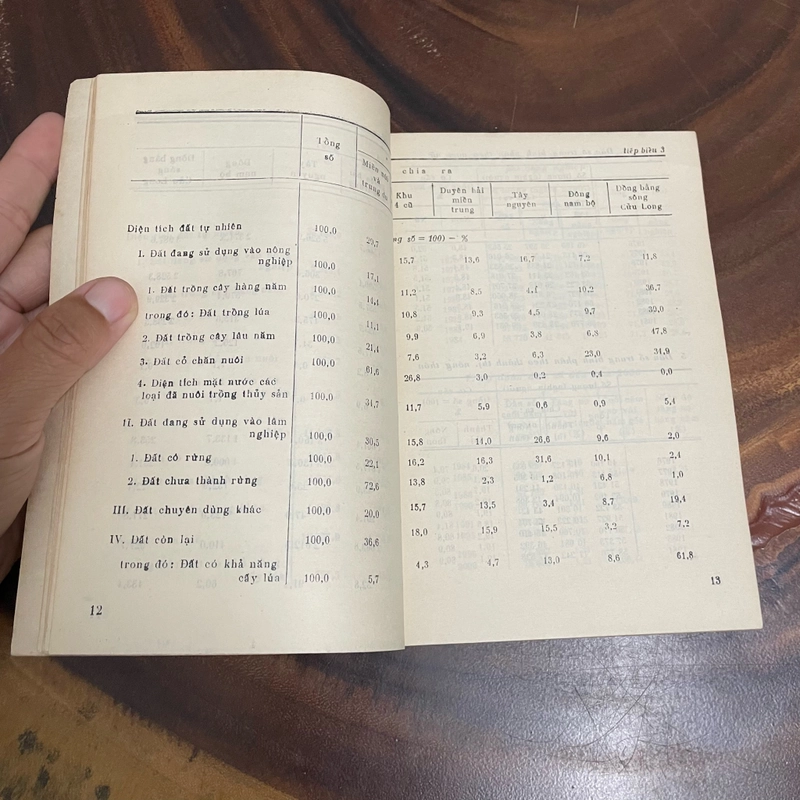 Tổng số
Miền núi và trung du
Diện tích đất tự nhiên 100,0 29,7
I. Đất đang sử dụng vào nông
nghiệp 100,0 17,1
1. Đất trồng cây hàng năm 100,0 14,4
trong đó: Đất trồng lúa 100,0 11,1
2. Đất trồng cây lâu năm 100,0 21,4
3. Đất cỏ chăn nuôi 100,0 61,6
4. Diện tích mặt nước các
loại đã nuôi trồng thủy sản 100,0 34,7
II. Đất đang sử dụng vào lâm
nghiệp 100,0 30,5
1. Đất có rừng 100,0 22,1
2. Đất chưa thành rừng 100,0 72,6
III. Đất chuyên dùng khác 100,0 20,0
IV. Đất còn lại 100,0 36,6
trong đó: Đất có khả năng
cấy lúa 100,0 5,7
12
tiếp biểu 3
chia ra
Khu 4 cũ
Duyên hải miền trung
Tây nguyên
Đông nam bộ
Đồng bằng sông Cửu Long
số = 100) - %
15,7 13,6 16,7 7,2 11,8
11,2 8,5 4,1 10,2 36,7
10,8 9,3 4,5 9,7 39,0
9,9 6,9 3,8 6,8 47,8
7,6 3,2 6,3 23,0 34,9
26,8 3,0 0,2 0,4 0,0
11,7 5,9 0,6 0,9 5,4
15,8 14,0 26,6 9,6 2,0
16,2 16,3 31,6 10,1 2,4
13,8 2,3 1,2 6,8 1,0
15,7 13,5 3,4 8,7 19,4
18,0 15,9 15,5 3,2 7,2
4,3 4,7 13,0 8,6 61,8
13